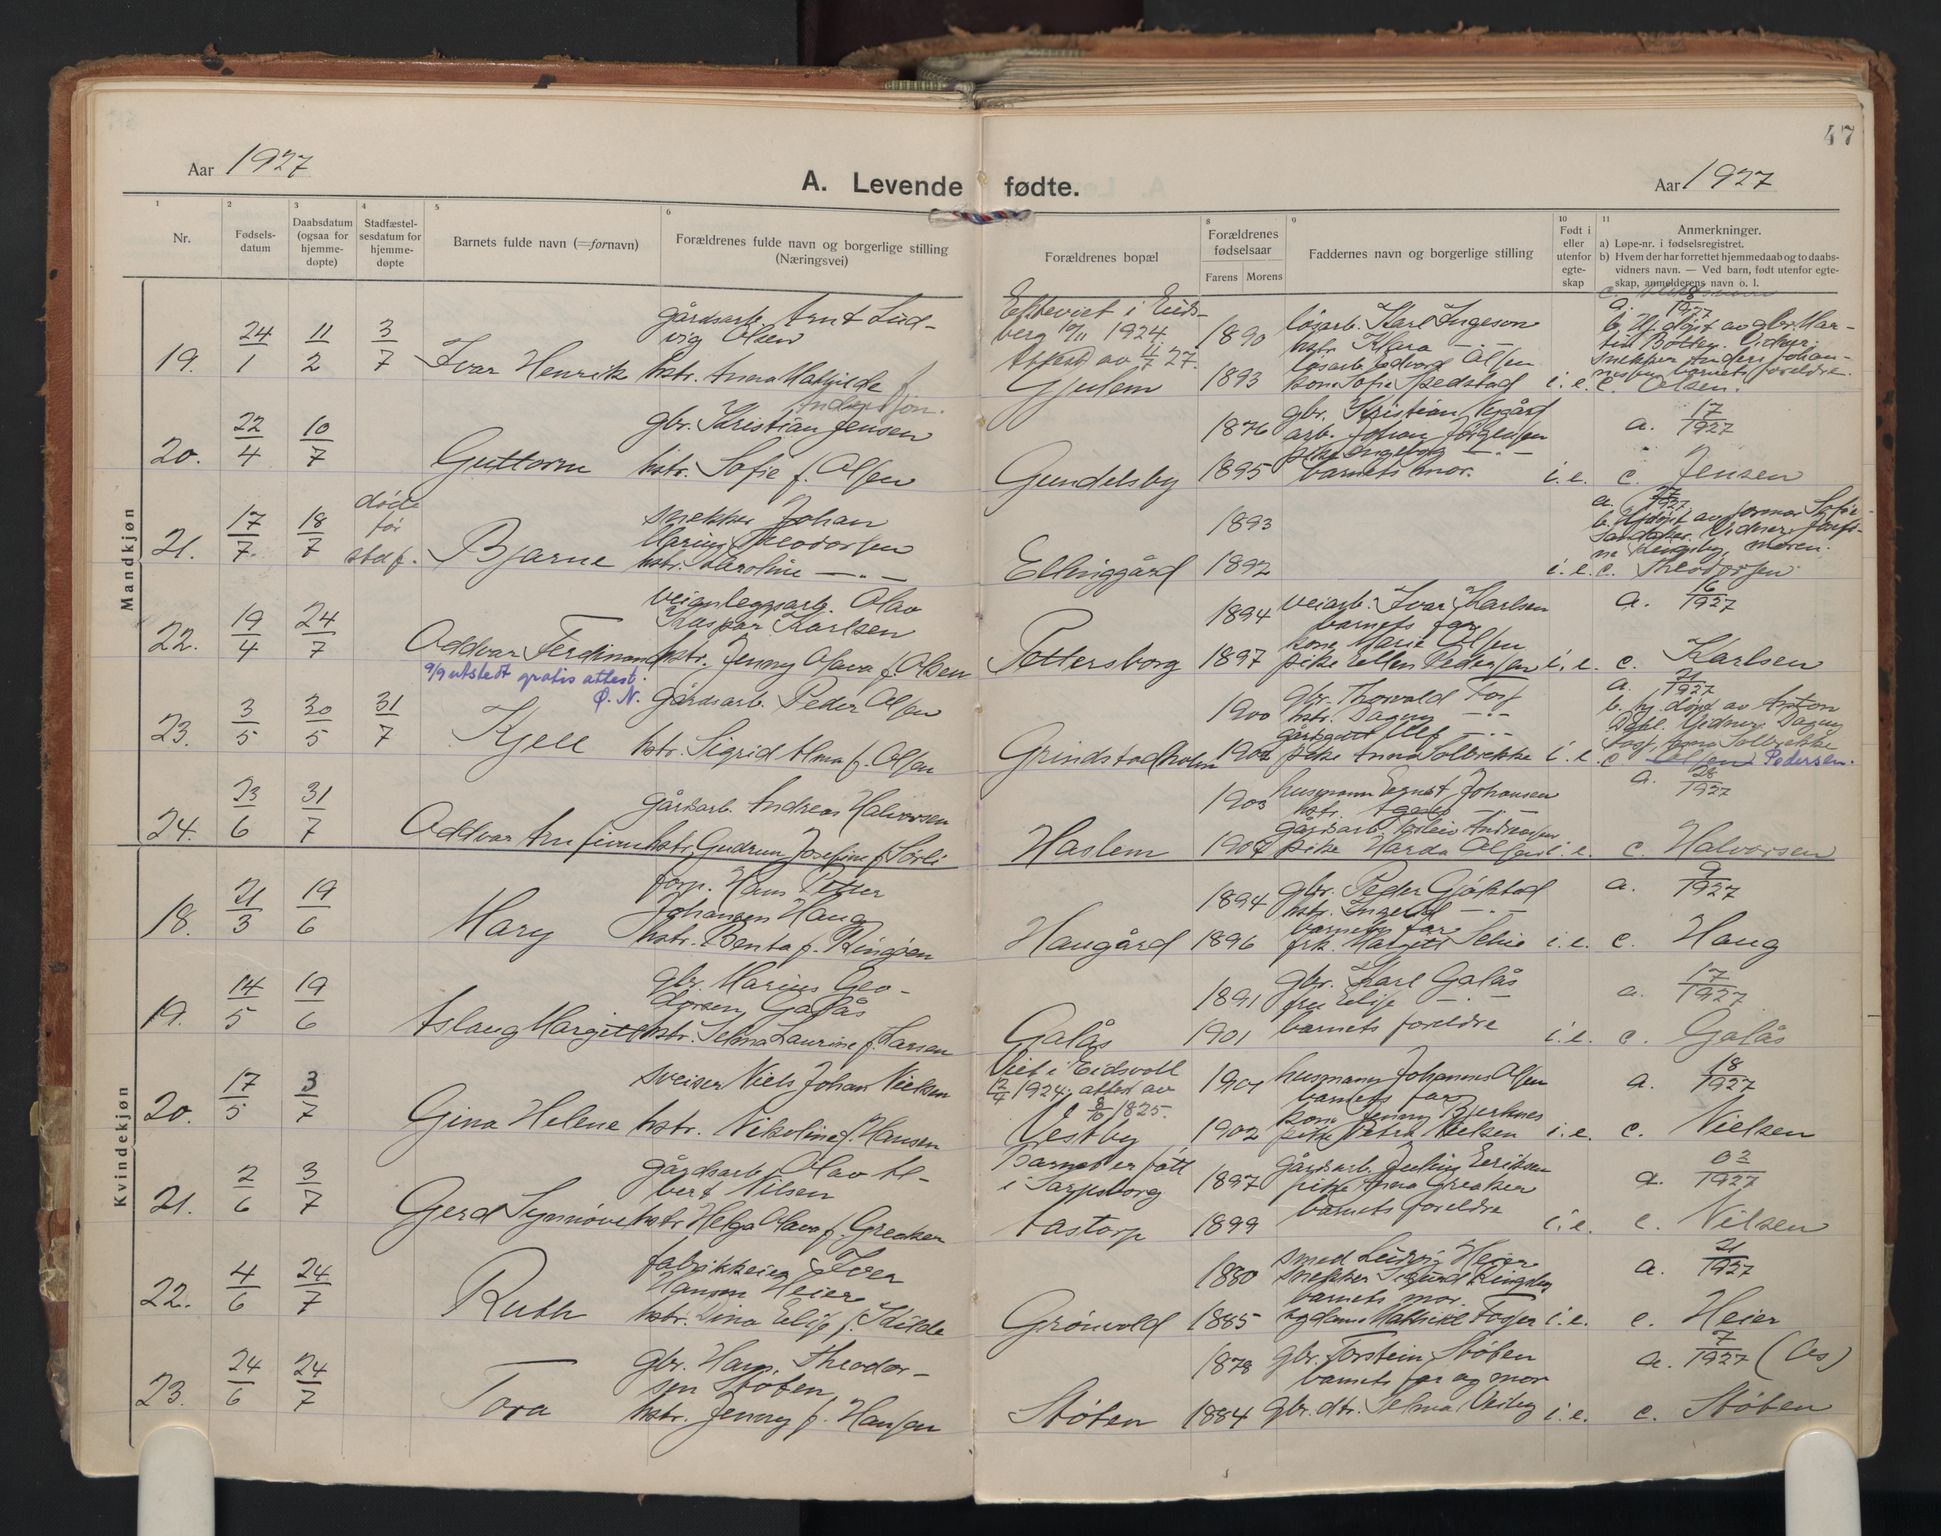 47
Aar 1927
A. Levende fødte.
Aar 1927
1 2 3 4 5 6 8 9 10 11
Nr.
Fødsels-
datum
Daabsdatum
(ogsaa for
hjemme-
døpte)
Stadfæstel-
sesdatum for
hjemme-
døpte
Barnets fulde navn (=fornavn)
Forældrenes fulde navn og borgerlige stilling
(Næringsvei)
Forældrenes bopæl
Forældrenes
fødselsaar
Farens Morens
Faddernes navn og borgerlige stilling
Født i
eller
utenfor
egte-
skap
Anmerkninger.
a) Løpe-nr. i fødselsregistret.
b) Hvem der har forrettet hjemmedaab og to daabs-
vidners navn. — Ved barn, født utenfor egte-
skap, anmelderens navn o. l.
Mandkjøn
19. 24/1 11/2 3/7 Ivar Henrik
gårdsarb. Arnt Lud-
vig Olsen
hstr. Anna Mathilde f.
Ekteviet i Eids-
berg 1924.
Attest av 27.
Gjulem
1890
1893
løsarb. Karl Ingeson
hstr. Klara —.—
løsarb. Edvard Olsen
kone Sofie Spedstad
i. e.
a. 8/1927
b. Hj. døpt av gbr. Mar-
tin Botten. Vidner:
snekker Anders Johan-
nesen, barnets foreldre.
c. Olsen.
20. 22/4 10/7 Guttorm
gbr. Kristian Jensen
hstr. Sofie f. Olsen
Gundelsby
1876
1895
gbr. Kristian Nygård
arb. Johan Jørgensen
pike Ingeborg —.—
barnets mor.
i. e.
a. 17/1927
c. Jensen
21. 17/7 18/7
døde
før
stadf.
Bjarne
snekker Johan
Marius Theodorsen
hstr. Karoline —.—
Ellinggård
1893
1892
i. e.
a. 27/1927
b. Hj. døpt av jormor Sofie
Vidner: Josefi-
ne moren.
c. Theodorsen
22. 19/4 24/7 Oddvar Ferdinand
9/9 utstedt gratis attest.
Ø. N.
veianleggsarb. Olav
Kaspar Karlsen
hstr. Jenny Olava f. Olsen
Pottersborg
1894
1897
veiarb. Ivar Karlsen
barnets far
kone Marie Olsen
pike Ellen Pedersen
i. e.
a. 6/1927
c. Karlsen
23. 3/5 20/5 31/7 Kjell
gårdsarb. Peder Olsen
hstr. Sigrid Alma f. Olsen
Grindstadholm
1900
1902
gbr. Thorvald
hstr. Dagny —.—
pike Anna Solbrekke
i. e.
a. 21/1927
b. hj. døpt av Anton
Dahl. Vidner: Dagny
Anna Solbrekke
c. Olsen Pedersen.
24. 23/6 31/7 Oddvar Arnfinn
gårdsarb. Andreas Halvorsen
hstr. Gudrun Josefine f. Sørli
Haslem
1903
1907
husmann Ernst Johansen
hstr. Agnes —.—
gårdsarb. Torleiv Andreassen
pike Harda Olsen
i. e.
a. 28/1927
c. Halvorsen
Kvindekjøn
18. 21/3 19/6 Mary
forp. Hans Petter
Johansen Haug
hstr. Benta f. Ringøen
Haugård
1894
1896
gbr. Peder Gjøkstad
hstr. Ingerid —.—
barnets far
frk. Margit Lie
i. e.
a. 9/1927
c. Haug
19. 14/5 19/6 Aslaug Margit
gbr. Marius Geo-
dorsen Galås
hstr. Selma Laurine f. Larsen
Galås
1891
1901
gbr. Karl Galås
fru Elise —.—
barnets foreldre
i. e.
a. 17/1927
c. Galås
20. 17/5 3/7 Gina Helene
sveiser Niels Johan Nielsen
hstr. Nikoline f. Hansen
Viet i Eidsvoll
12/4 1924, attest av
8/10 1825.
Vestby
1901
1902
husmann Johannes Olsen
barnets far
kone Jenny Bjerknes
pike Petra Nielsen
i. e.
a. 18/1927
c. Nielsen
21. 2/6 3/7 Gerd Synnøve
gårdsarb. Olav Al-
bert Nilsen
hstr. Helga Olava f. Greaker
Barnet er født
i Sarpsborg
Tastorp
1897
1899
gårdsarb. Julius Eriksen
pike Anna Greaker
barnets foreldre
i. e.
a. 03/1927
c. Nilsen
22. 4/6 24/7 Ruth
fabrikkeier Iver
Hansen Heier
hstr. Dina Elise f. Kilde
Grönvold
1880
1885
smed Ludvig Heier
snekker Sigurd Ringsby
barnets mor.
ugdame Mathilde Foger
i. e.
a. 21/1927
c. Heier
23. 24/6 24/7 Tora
gbr. Hans Theodor-
sen Støten
hstr. Jenny f. Hansen
Støten
1878
1884
gbr. Torstein Støten
barnets far og mor
gbr. dtr. Selma Visteg
i. e.
a. 7/1927 (Ås)
c. Støten